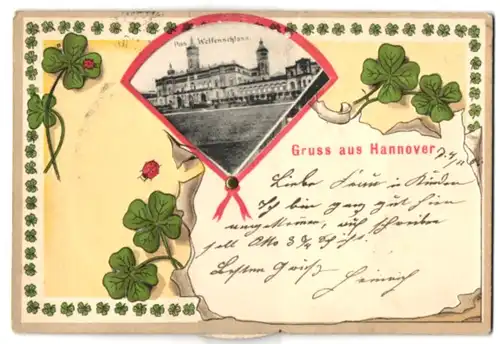 Das Welfenschloss.
Gruss aus Hannover
Liebe Frau u Kinder
Ich bin ganz gut hier
angekommen, auch schreiben
soll Otto
Besten Gruß
Heinrich